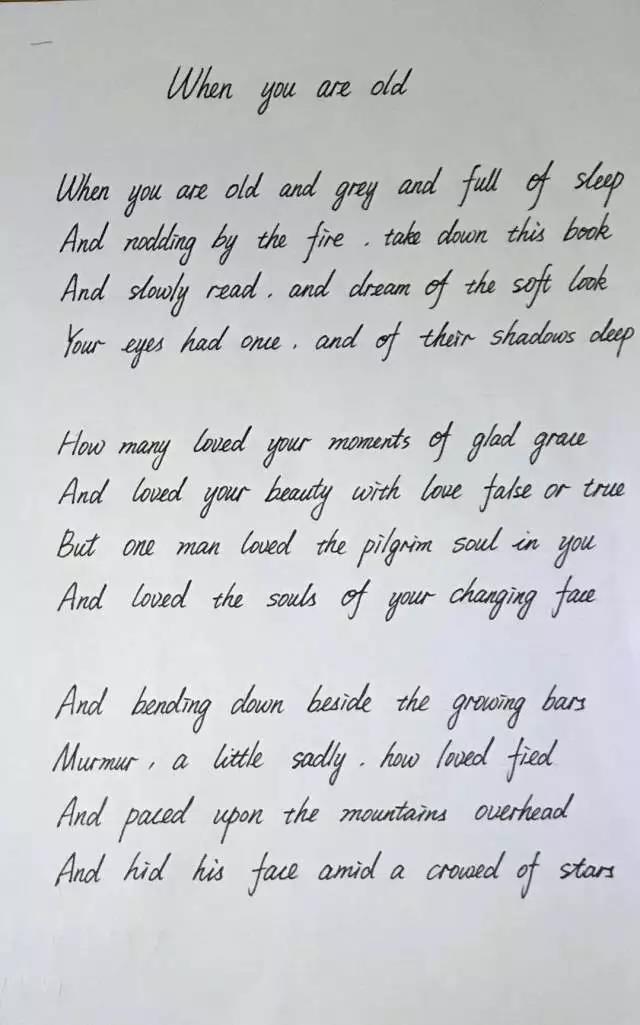 When you are old
When you are old and grey and full of sleep
And nodding by the fire , take down this book
And slowly read , and dream of the soft look
Your eyes had once , and of their shadows deep
How many loved your moments of glad grace
And loved your beauty with love false or true
But one man loved the pilgrim soul in you
And loved the souls of your changing face
And bending down beside the growing bars
Murmur , a little sadly , how loved fied
And paced upon the mountains overhead
And hid his face amid a crowed of stars